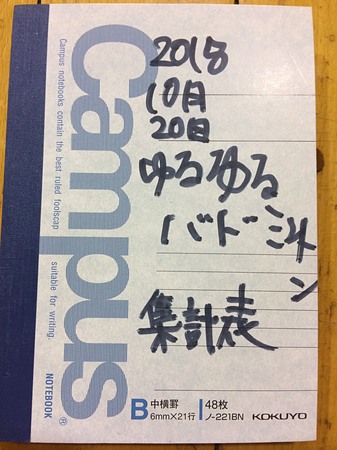 2018
10月
20日
ゆるゆる
バドミントン
集計表
Campus
Campus notebooks contain the best ruled foolscap
suitable for writing.
NOTEBOOK
B 中横罫 6mm×21行
48枚 ノ-221BN
KOKUYO